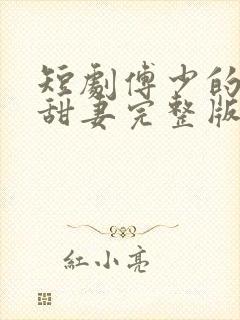 短劇傅少的
甜妻完整版
紅小亮